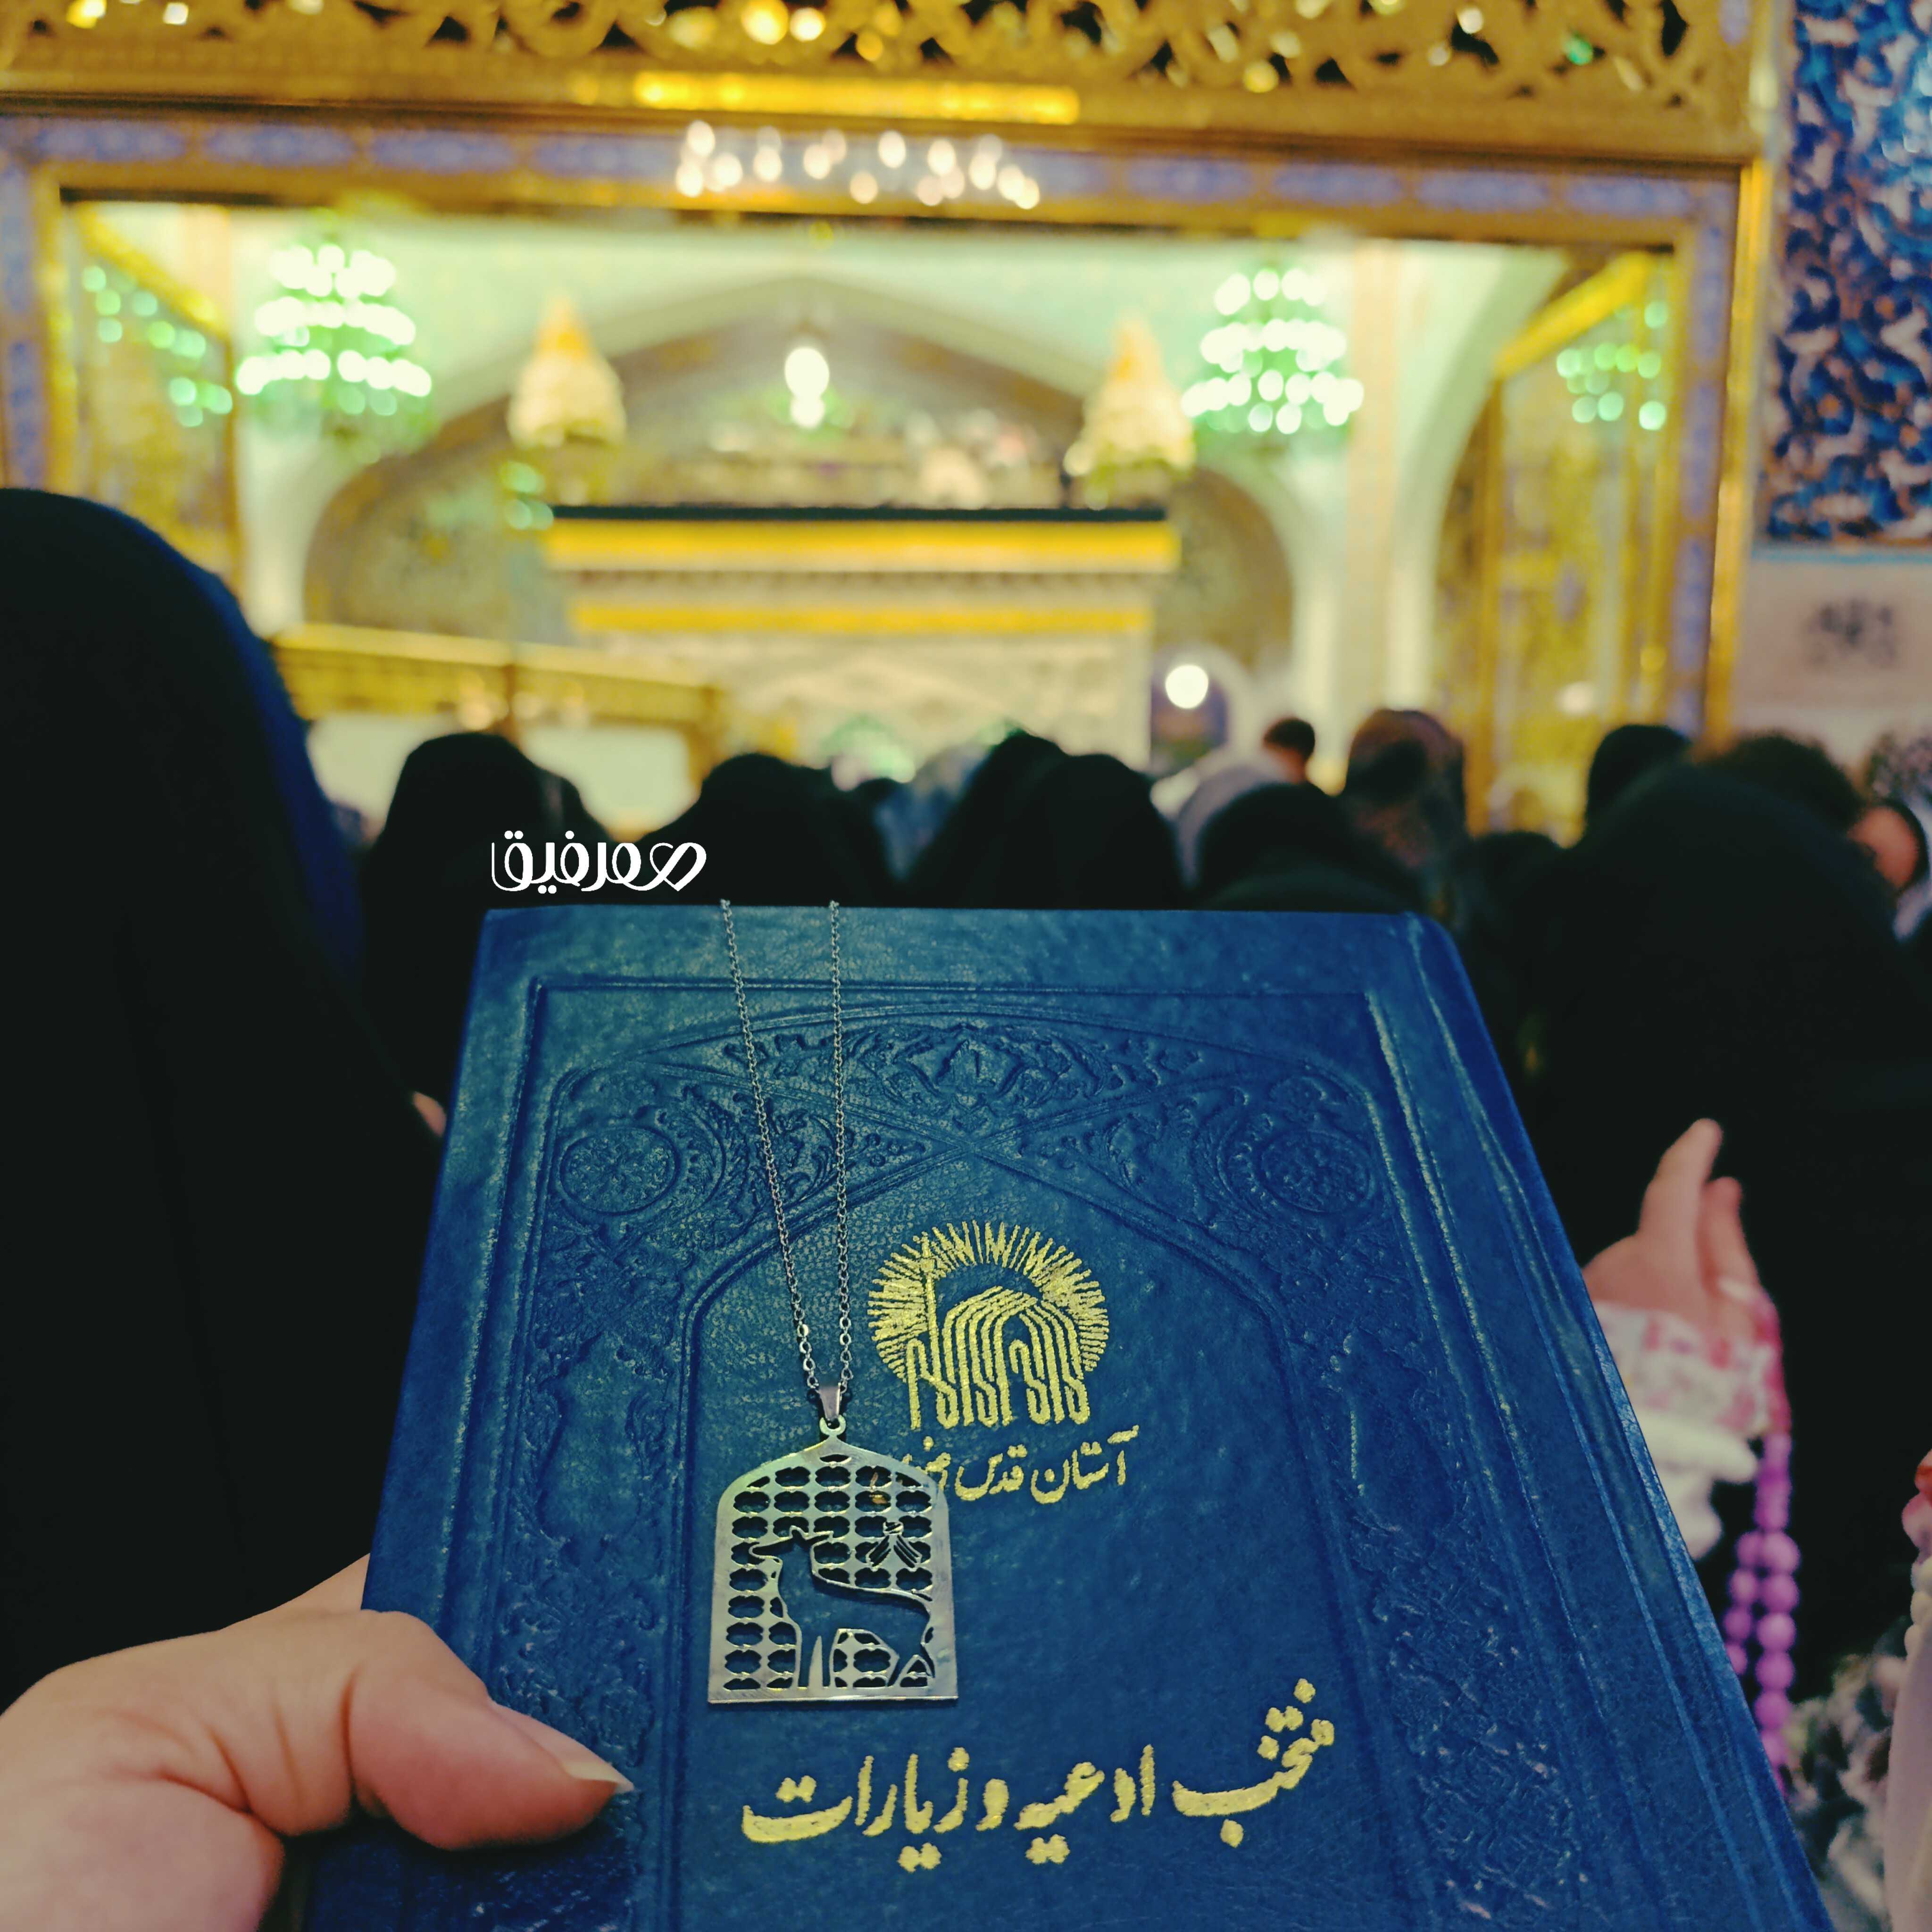 همرفیق
آستان قدس
منتخب ادعیه و زیارات